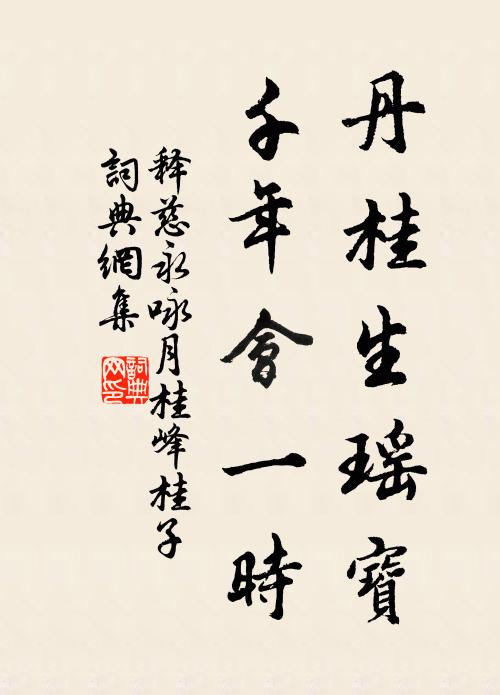 丹桂生瑶寶
千年會一時
释慈永咏月桂峰桂子
詞典網集
詞典網印